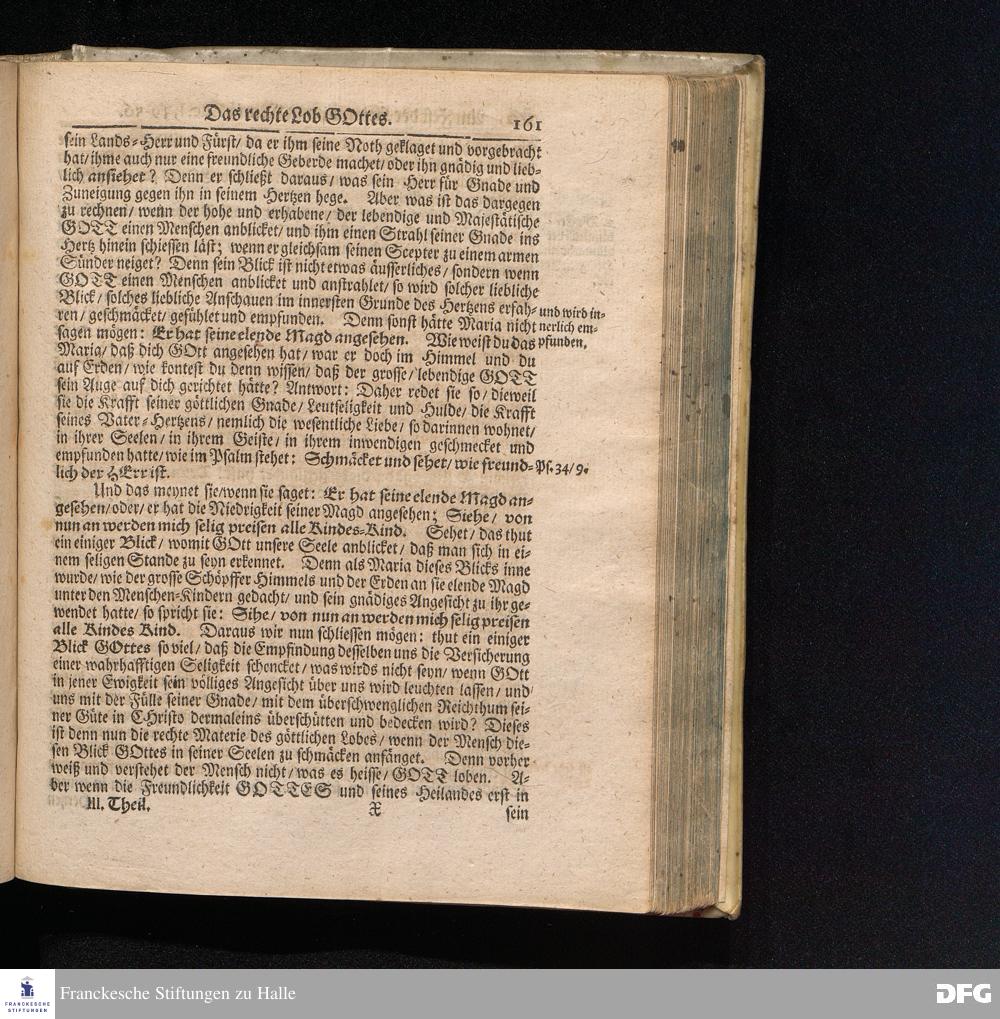 Das rechte Lob GOttes. 161
sein Lands-Herr und Fürst/ da er ihm seine Noth geklaget und vorgebracht
hat/ ihme auch nur eine freundliche Geberde machet/ oder ihn gnädig und lieb-
lich ansiehet? Denn er schließt daraus/ was sein Herr für Gnade und
Zuneigung gegen ihn in seinem Hertzen hege. Aber was ist das dargegen
zu rechnen/ wenn der hohe und erhabene/ der lebendige und Majestätische
GOTT einen Menschen anblicket/ und ihm einen Strahl seiner Gnade ins
Hertz hinein schiessen läst; wenn er gleichsam seinen Scepter zu einem armen
Sünder neiget? Denn sein Blick ist nicht etwas äusserliches/ sondern wenn
GOTT einen Menschen anblicket und anstrahlet/ so wird solcher liebliche
Blick/ solches liebliche Anschauen im innersten Grunde des Hertzens erfah-
ren/ geschmäcket/ gefühlet und empfunden. Denn sonst hätte Maria nicht
sagen mögen: Er hat seine elende Magd angesehen. Wie weist du das
und wird in-
nerlich em-
pfunden.
Maria/ daß dich GOtt angesehen hat/ war er doch im Himmel und du
auf Erden/ wie kontest du denn wissen/ daß der grosse/ lebendige GOTT
sein Auge auf dich gerichtet hätte? Antwort: Daher redet sie so/ dieweil
sie die Krafft seiner göttlichen Gnade/ Leutseligkeit und Hulde/ die Krafft
seines Vater-Hertzens/ nemlich die wesentliche Liebe/ so darinnen wohnet/
in ihrer Seelen/ in ihrem Geiste/ in ihrem inwendigen geschmecket und
empfunden hatte/ wie im Psalm stehet: Schmäcket und sehet/ wie freund-
lich der HErr ist.
Ps. 34/9.
Und das meynet sie/ wenn sie saget: Er hat seine elende Magd an-
gesehen/ oder/ er hat die Niedrigkeit seiner Magd angesehen; Siehe/ von
nun an werden mich selig preisen alle Kindes-Kind. Sehet/ das thut
ein einiger Blick/ womit GOtt unsere Seele anblicket/ daß man sich in ei-
nem seligen Stande zu seyn erkennet. Denn als Maria dieses Blicks inne
wurde/ wie der grosse Schöpffer Himmels und der Erden an sie elende Magd
unter den Menschen-Kindern gedacht/ und sein gnädiges Angesicht zu ihr ge-
wendet hatte/ so spricht sie: Sihe/ von nun an werden mich selig preisen
alle Kindes Kind. Daraus wir nun schliessen mögen: thut ein einiger
Blick GOttes so viel/ daß die Empfindung desselben uns die Versicherung
einer wahrhafftigen Seligkeit schencket/ was wirds nicht seyn/ wenn GOtt
in jener Ewigkeit sein völliges Angesicht über uns wird leuchten lassen/ und
uns mit der Fülle seiner Gnade/ mit dem überschwenglichen Reichthum sei-
ner Güte in CHristo dermaleins überschütten und bedecken wird? Dieses
ist denn nun die rechte Materie des göttlichen Lobes/ wenn der Mensch die-
sen Blick GOttes in seiner Seelen zu schmäcken anfänget. Denn vorher
weiß und verstehet der Mensch nicht/ was es heisse/ GOTT loben. A-
ber wenn die Freundlichkeit GOTTES und seines Heilandes erst in
III. Theil. X sein
FRANCKESCHE
STIFTUNGEN
Franckesche Stiftungen zu Halle
DFG